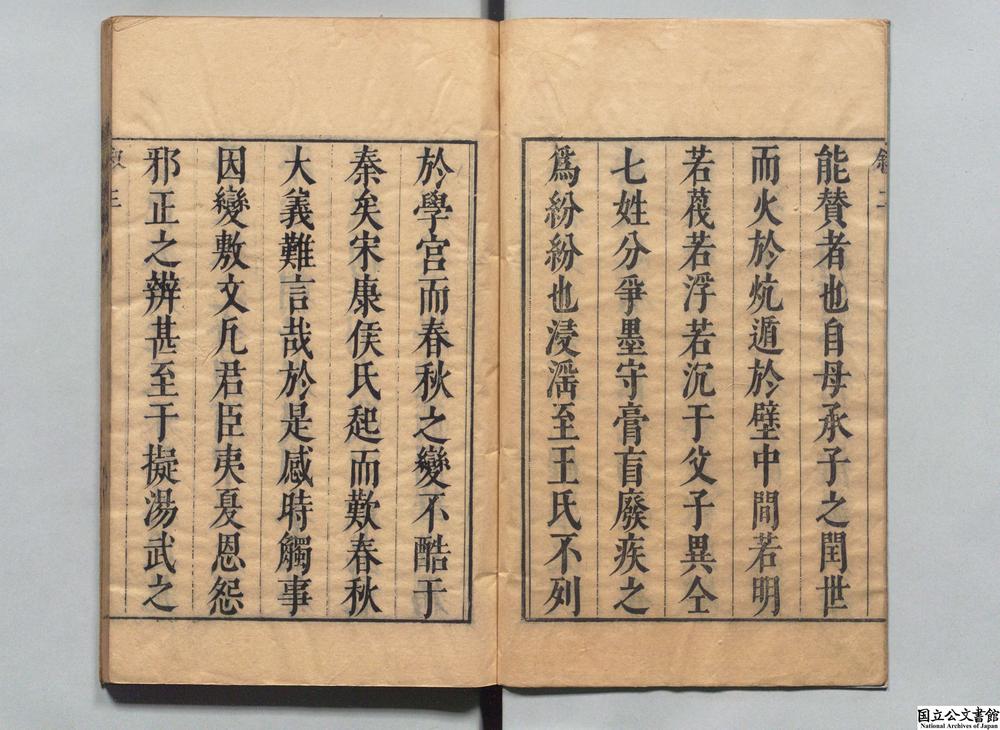 能賛者也自母承子之閏世
而火於炕遁於壁中間若明
若蔑若浮若沉于父子異仝
七姓分爭墨守膏盲廢疾之
爲紛紛也浸滛至王氏不列
於學宮而春秋之變不酷于
秦矣宋康侯氏起而歎春秋
大義難言哉於是感時觸事
因變敷文凡君臣夷夏恩怨
邪正之辨甚至于擬湯武之
国立公文書館
National Archives of Japan